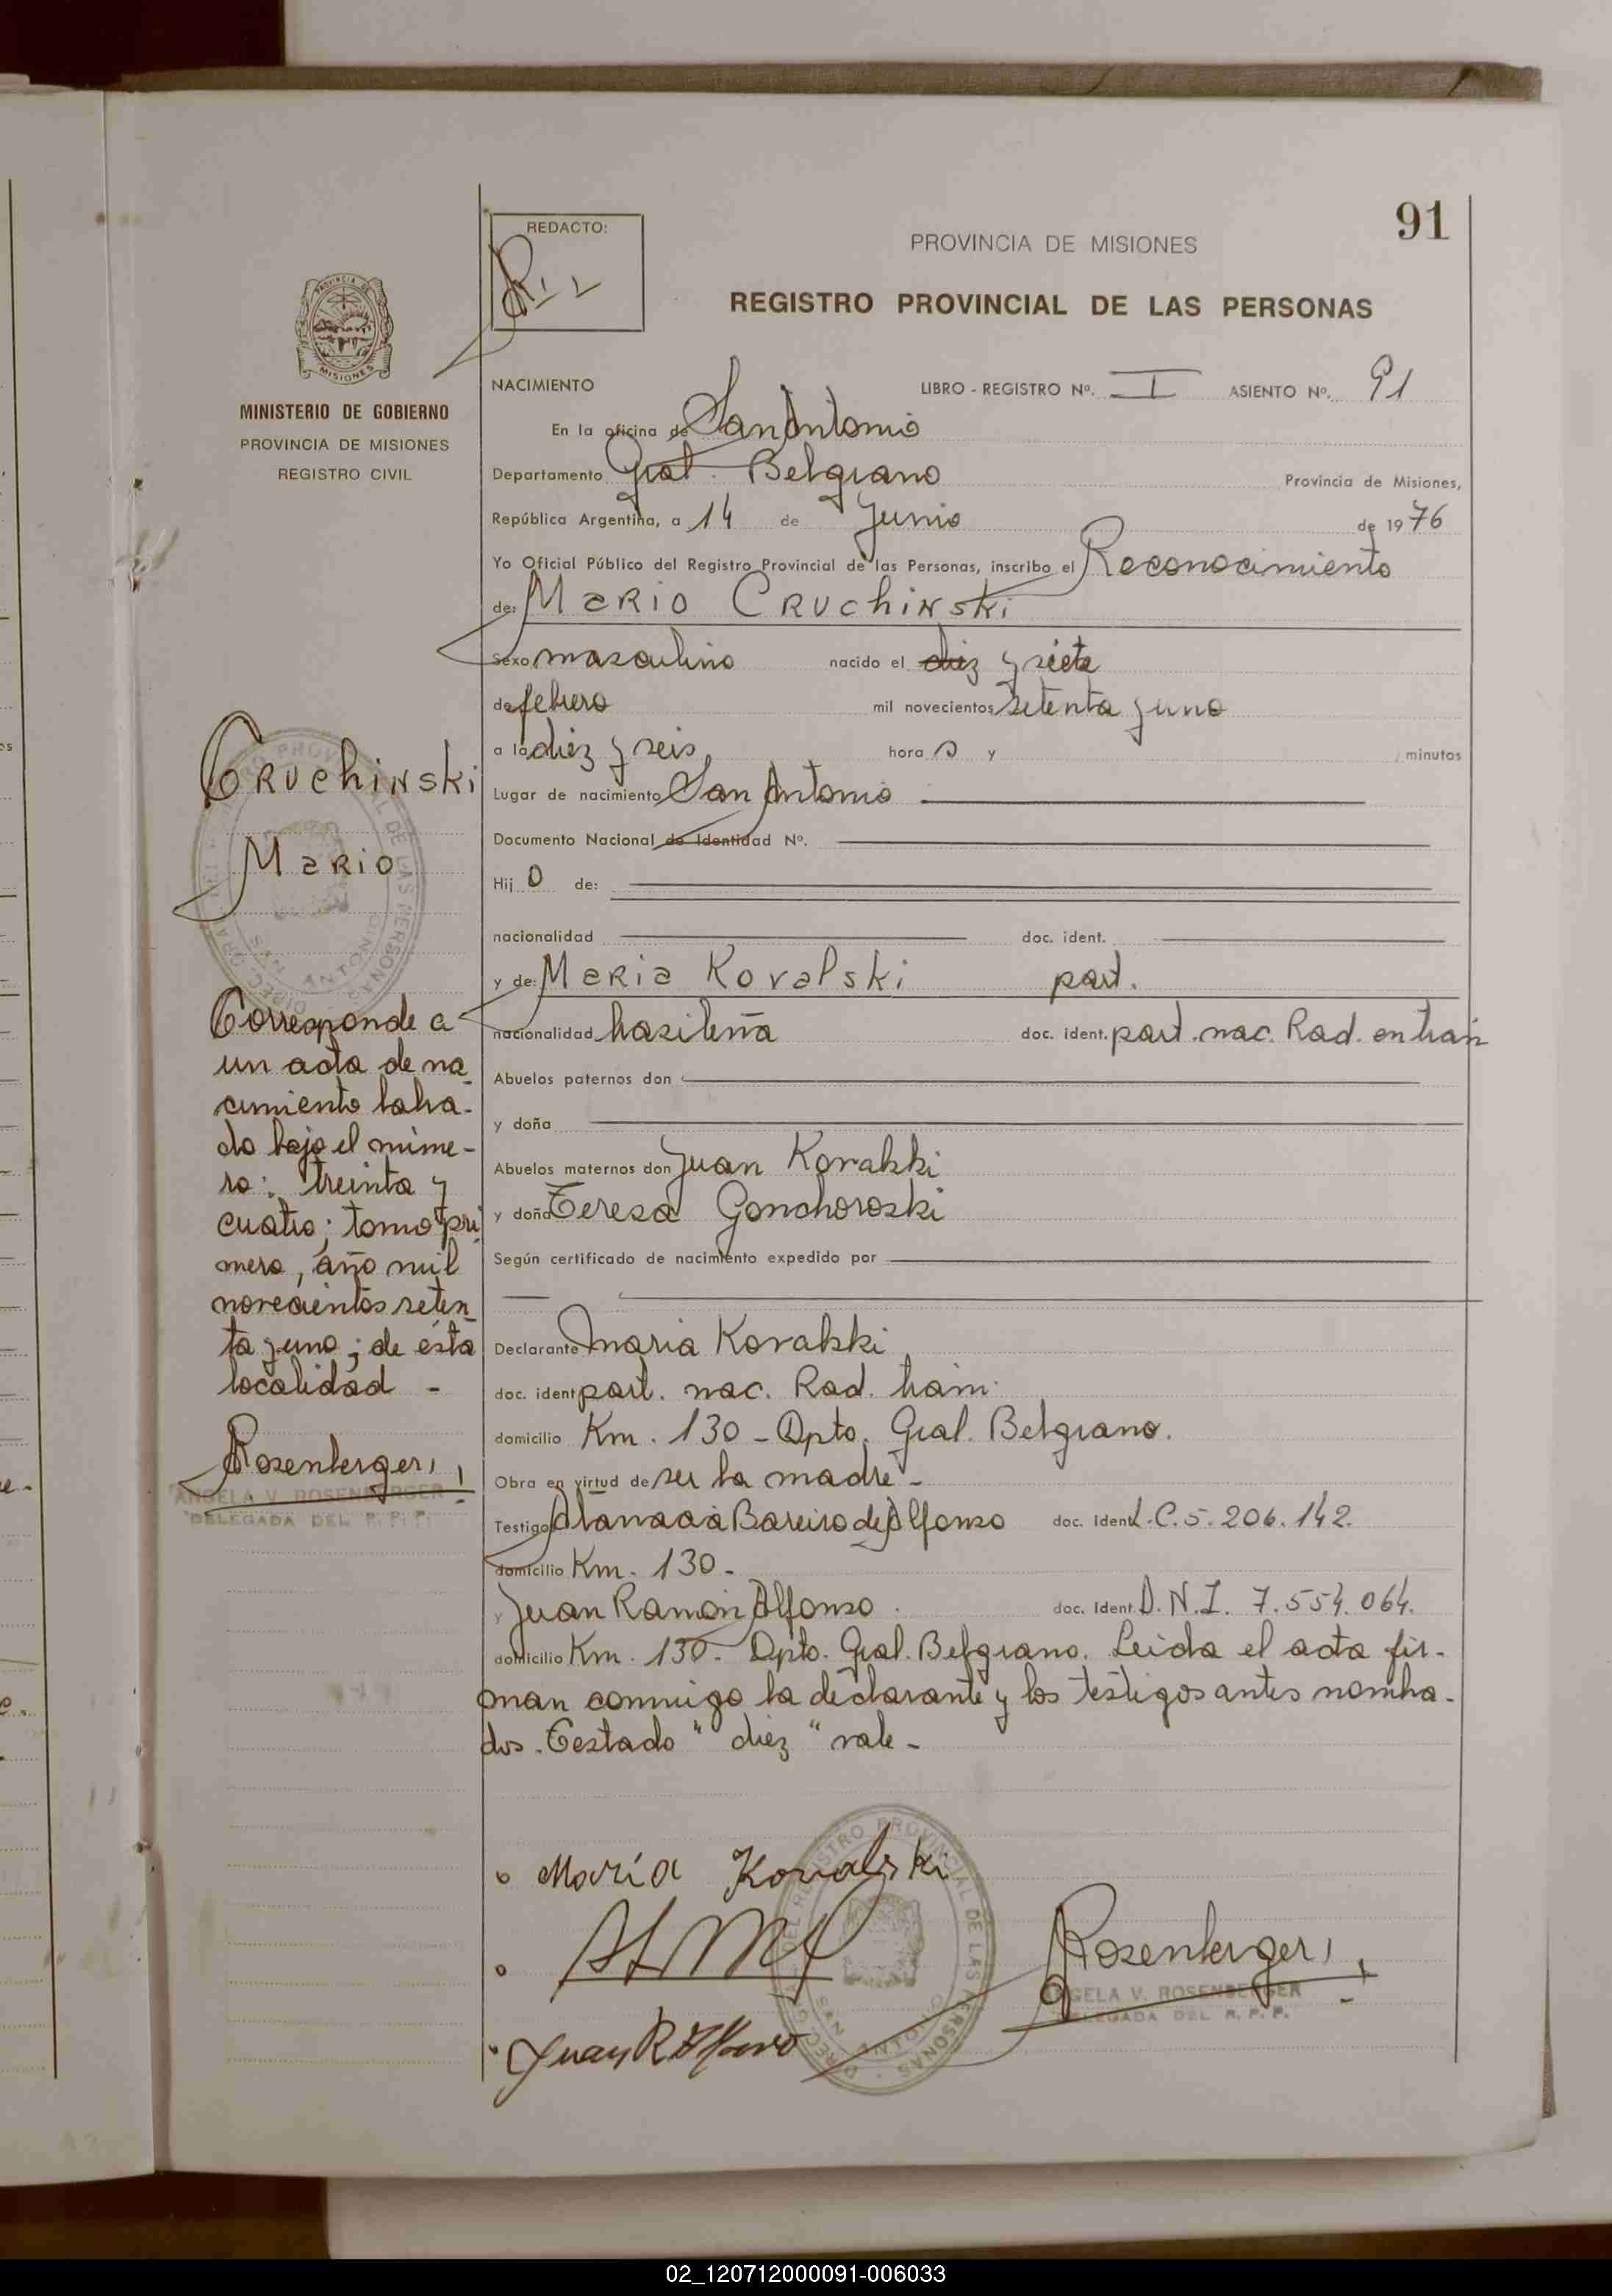 91
REDACTO:
PROVINCIA DE MISIONES
REGISTRO PROVINCIAL DE LAS PERSONAS
MISIONES
MINISTERIO DE GOBIERNO
PROVINCIA DE MISIONES
REGISTRO CIVIL
NACIMIENTO LIBRO - REGISTRO Nº. I ASIENTO Nº. 91
En la oficina de San Antonio
Departamento Gral. Belgrano Provincia de Misiones,
República Argentina, a 14 de Junio de 1976
Yo Oficial Público del Registro Provincial de las Personas, inscribo el Reconocimiento
de: Mario Cruchinski
Sexo masculino nacido el diez y siete
de febrero mil novecientos setenta y uno
a la diez y seis hora s y minutos
Lugar de nacimiento San Antonio
Documento Nacional de Identidad Nº.
Hij o de:
nacionalidad doc. ident.
y de: Maria Kovalski part.
nacionalidad brasileña doc. ident. part. nac. Rad. en trám
Abuelos paternos don
y doña
Abuelos maternos don Juan Kovalski
y doña Teresa Gonchoroski
Según certificado de nacimiento expedido por
Declarante Maria Kovalski
doc. ident part. nac. Rad. trám.
domicilio Km. 130 - Dpto. Gral. Belgrano.
Obra en virtud de ser la madre -
Testigo Atanacia Bareiro de Alfonso doc. Ident L.C. 5.206.142.
domicilio Km. 130 -
y Juan Ramón Alfonso doc. Ident. D.N.I. 7.554.064.
domicilio Km. 130 - Dpto. Gral. Belgrano. Leida el acta fir-
man conmigo la declarante y los testigos antes nombra-
dos. Testado "diez" vale -
Cruchinski
Mario
Corresponde a
un acta de na
cimiento labra-
do bajo el núme-
ro: treinta y
cuatro; tomo pri
mero, año mil
novecientos seten
ta y uno; de ésta
localidad -
Rosenberger
ANGELA V. ROSENBERGER
DELEGADA DEL R. P. P.
María Kovalski
Juan R Alfonso
Rosenberger
ANGELA V. ROSENBERGER
DELEGADA DEL R. P. P.
02_120712000091-006033